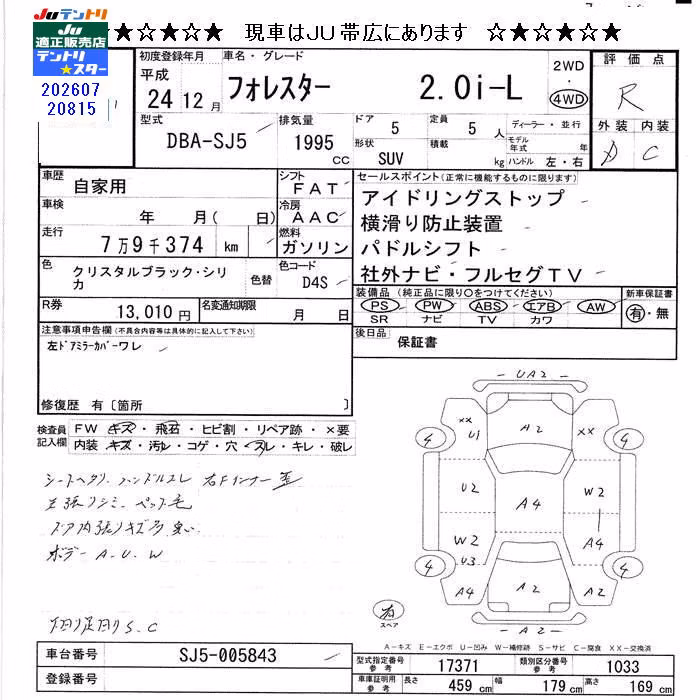 Juテントリ
JU
適正販売店
テントリ
★スター
202607
20815
★☆★☆★ 現車はJU帯広にあります ☆★☆★☆
初度登録年月
平成
24 12 月
車名・グレード
フォレスター 2.0i-L
2WD
・
4WD
評価点
R
外装 内装
C
型式
DBA-SJ5
排気量
1995
cc
ドア
5
形状
SUV
定員
5 人
積載
kg
ディーラー・並行
モデル年式 年
ハンドル 左・右
車歴
自家用
車検
年 月( 日)
走行
7万9千374 km
色
クリスタルブラック・シリカ
色替
色コード
D4S
シフト
FAT
冷房
AAC
燃料
ガソリン
セールスポイント(正常に機能するものに限ります)
アイドリングストップ
横滑り防止装置
パドルシフト
社外ナビ・フルセグTV
R券
13,010 円
名変通知期限
月 日
装備品(純正品に限り〇をつけてください)
PS PW ABS エアB AW
SR ナビ TV カワ
新車保証書
有・無
後日品
保証書
注意事項申告欄(不具合内容等は具体的に記入して下さい)
左ドアミラーカバーワレ
修復歴 有〔箇所 〕
検査員
記入欄
FW キズ・飛石・ヒビ割・リペア跡・×要
内装 キズ・汚れ・コゲ・穴・スレ・キレ・破レ
シートヘタリ ハンドルスレ 右Fインナー歪
天張りシミ ペット毛
ドア内張りキズ多 臭い
ボデー A-U.W
下回り足回りS.C
UA2
XX
U1
A2
A2
4
4
U2
A4
W2
W2
U3
A4
4
4
A4
A2
A2
A2
右
スペア
A-キズ E-エクボ U-凹み W-補修跡 S-サビ C-腐食 XX-交換済
車台番号
SJ5-005843
登録番号
型式指定番号
参考
17371
類別区分番号
参考
1033
車庫証明用
参考
長さ 459 cm
幅 179 cm
高さ 169 cm